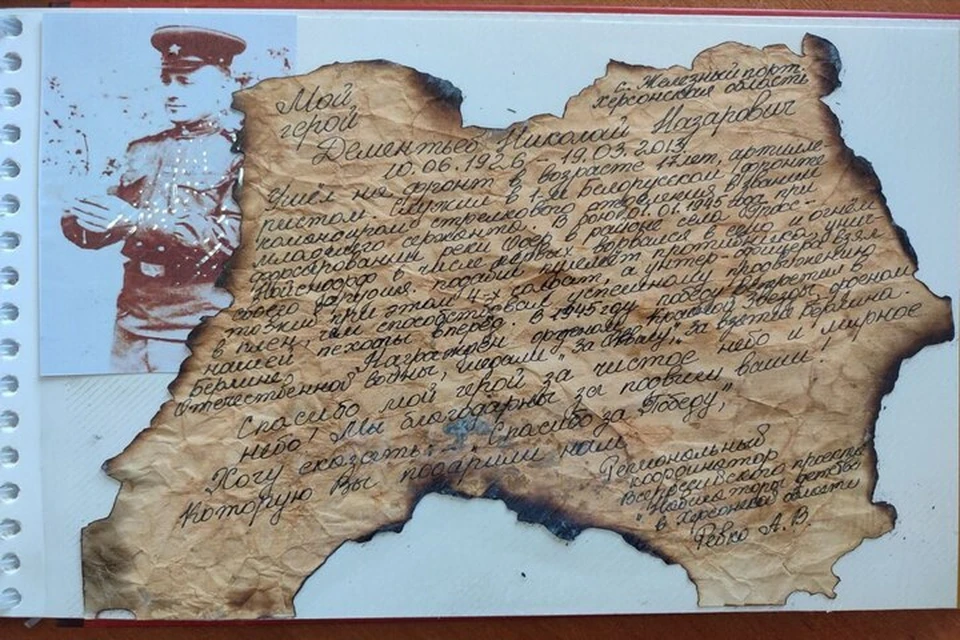 с. Железный порт
Херсонская область
Мой
герой
Дементьев Николай Назарович
10.06.1926 – 19.03.2013
Ушёл на фронт в возрасте 17 лет, артилле-
ристом. Служил в 1-м Белорусском фронте
командиром стрелкового отделения в звании
младшего сержанта. В бою 01.01.1945 года при
форсировании реки Одер в районе села Гросс-
Нойендорф в числе первых ворвался в село и огнём
своего оружия подавил пулемёт противника, унич-
тожил при этом 4-х солдат, а унтер-офицера взял
в плен, чем способствовал успешному продвижению
нашей пехоты вперёд. В 1945 году победу встретил в
Берлине. Награжден орденом Красной Звезды, орденом
Отечественной войны, медали "За Отвагу", "За взятие Берлина".
Спасибо мой герой за чистое небо и мирное
небо! Мы благодарны за подвиги ваши!
Хочу сказать: "Спасибо за Победу,"
которую Вы подарили нам
Региональный
координатор
Всероссийского проекта
в Херсонской области
Ревко А. В.